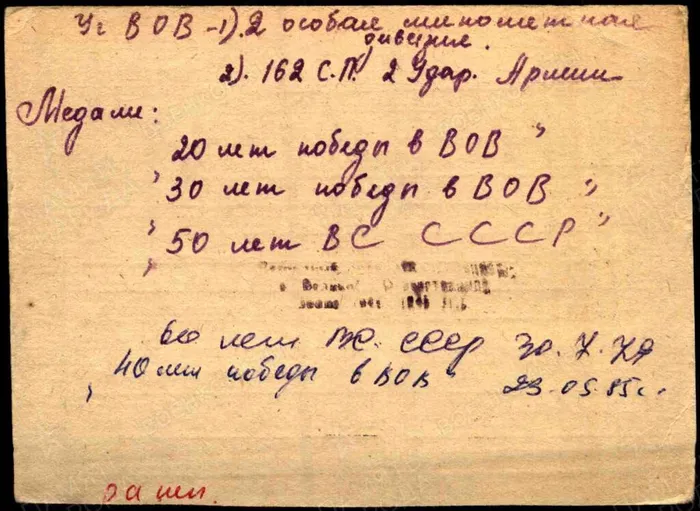 Уч ВОВ - 1). 2 особая минометная
дивизия.
2). 162 С.П. 2 Удар. Армии
Медали:
20 лет победы в ВОВ "
" 30 лет победы в ВОВ "
" 50 лет ВС СССР "
60 лет ВС СССР
" 40 лет победы в ВОВ" 23.05.85г.